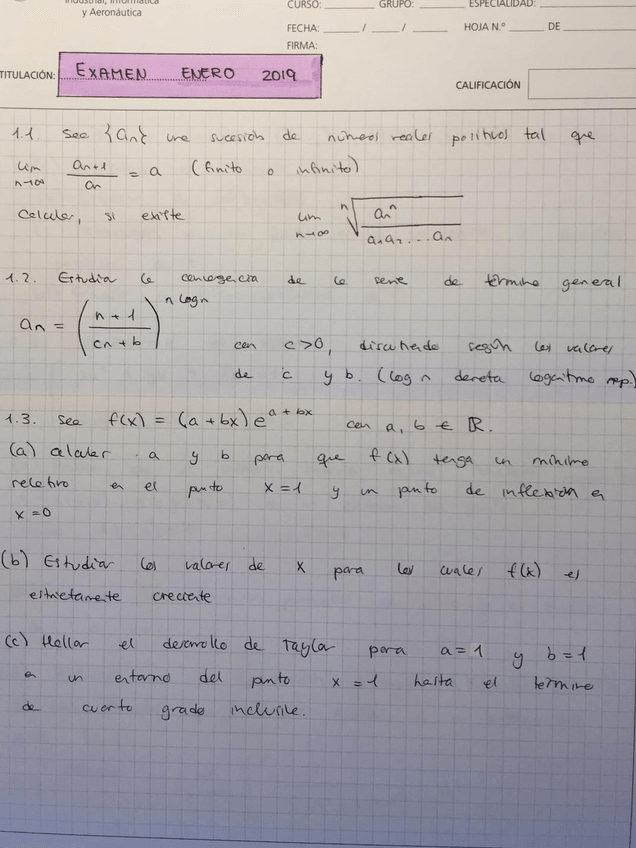 Industrial, Informática
y Aeronáutica
CURSO: GRUPO: ESPECIALIDAD:
FECHA: / / HOJA N.º DE
FIRMA:
TITULACIÓN: EXAMEN ENERO 2019
CALIFICACIÓN
1.1. Sea {an} una sucesión de números reales positivos tal que
lim n→∞ an+1 / an = a (finito o infinito)
Calcular, si existe lim n→∞ ⁿ√(anⁿ / a1a2...an)
1.2. Estudia la convergencia de la serie de término general
an = ((n+1)/(cn+b))^(n log n)
con c>0, discutiendo según los valores
de c y b. (log n denota logaritmo nep.)
1.3. sea f(x) = (a+bx)e^(a+bx) con a, b ∈ ℝ.
(a) calcular a y b para que f(x) tenga un mínimo
relativo en el punto x=1 y un punto de inflexión en
x=0
(b) Estudiar los valores de x para los cuales f(x) es
estrictamente creciente
(c) Hallar el desarrollo de Taylor para a=1 y b=1
en un entorno del punto x=1 hasta el término
de cuarto grado inclusive.